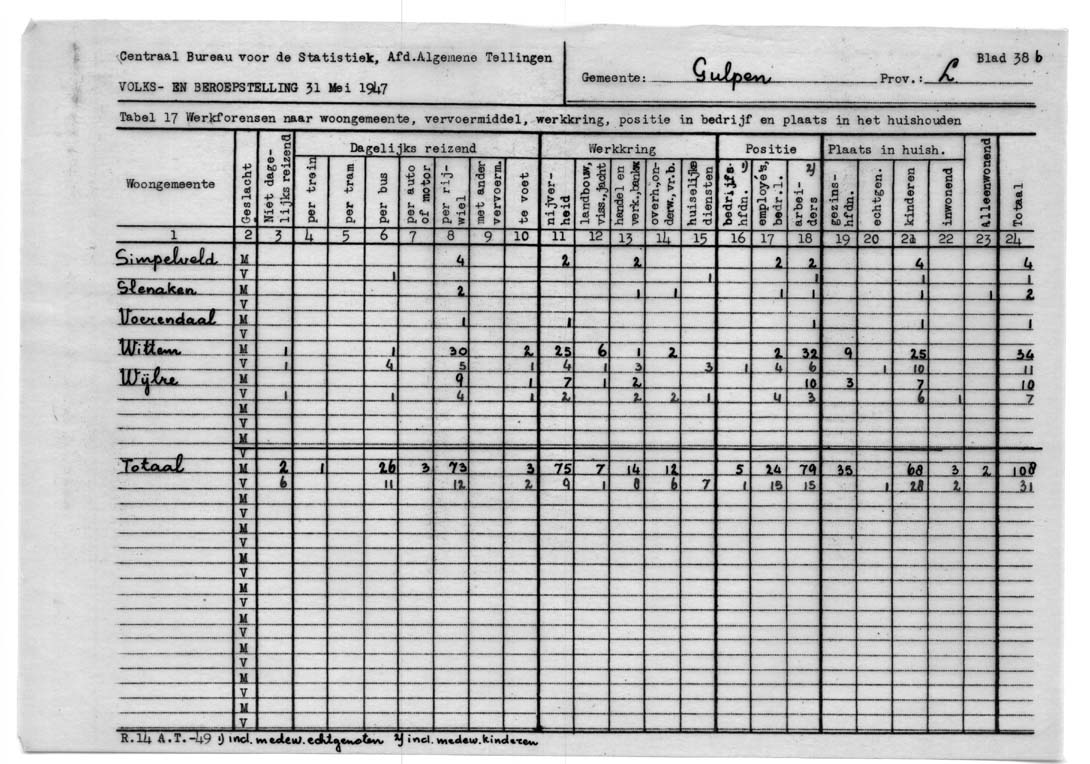 Centraal Bureau voor de Statistiek, Afd.Algemene Tellingen
VOLKS- EN BEROEPSTELLING 31 Mei 1947
Gemeente: Gulpen Prov.: L Blad 38 b
Tabel 17 Werkforensen naar woongemeente, vervoermiddel, werkkring, positie in bedrijf en plaats in het huishouden
Woongemeente Geslacht Niet dage-lijks reizend Dagelijks reizend Werkkring Positie Plaats in huish. Alleenwonend Totaal
per trein per tram per bus per auto of motor per rij-wiel met ander vervoerm. te voet nijver-heid landbouw, viss.,jacht handel en verk.,bankw. overh.,on-derw.,vr.b. huiselijke diensten bedrijfs-hfdn. 1) employé's, bedr.l. arbei-ders 2) gezins-hfdn. echtgen. kinderen inwonend
1 2 3 4 5 6 7 8 9 10 11 12 13 14 15 16 17 18 19 20 21 22 23 24
Simpelveld M 4 2 2 2 2 4 4
V 1 1 1 1 1
Slenaken M 2 1 1 1 1 1 1 2
V
Voerendaal M 1 1 1 1 1
V
Wittem M 1 1 30 2 25 6 1 2 2 32 9 25 34
V 1 4 5 1 4 1 3 3 1 4 6 1 10 11
Wijlre M 9 1 7 1 2 10 3 7 10
V 1 1 4 1 2 2 2 1 4 3 6 1 7
M
V
M
V
Totaal M 2 1 26 3 73 3 75 7 14 12 5 24 79 35 68 3 2 108
V 6 11 12 2 9 1 8 6 7 1 15 15 1 28 2 31
M
V
M
V
M
V
M
V
M
V
M
V
M
V
M
V
R.14 A.T.-49 1) incl. medew. echtgenoten 2) incl. medew. kinderen